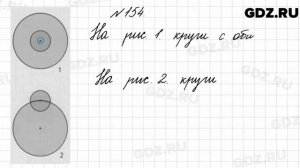 GDZ.RU
№154.
На рис 1 круги с общ
1
На рис. 2 круги
2
GDZ.RU